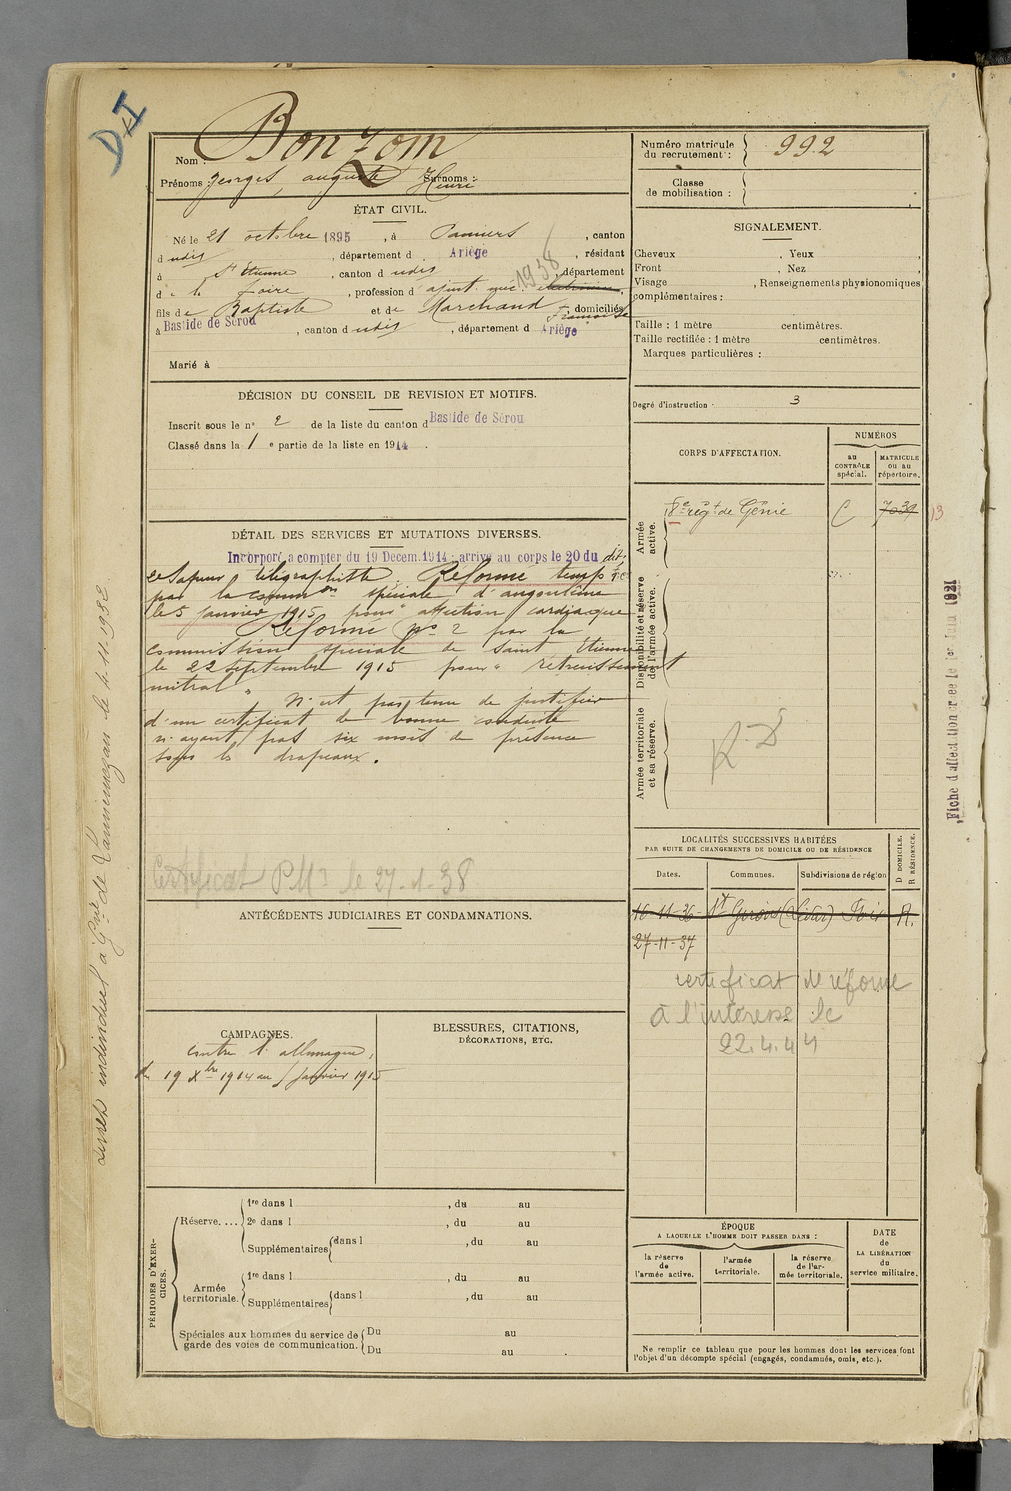 D I
Nom : Bonzom
Prénoms : Georges, auguste Surnoms : Henri
Numéro matricule du recrutement : 992
Classe de mobilisation :
ÉTAT CIVIL.
Né le 21 octobre 1895, à Pamiers, canton
d udis, département d Ariège, résidant
à St Etienne, canton d udis, département
d e la Loire, profession d' ajust. méc 1938
fils de Baptiste et de Marchand Françoise, domiciliés
à Bastide de Sérou, canton d udis, département d Ariège
Marié à
SIGNALEMENT.
Cheveux , Yeux ,
Front , Nez ,
Visage , Renseignements physionomiques
complémentaires :
Taille : 1 mètre centimètres.
Taille rectifiée : 1 mètre centimètres.
Marques particulières :
Degré d'instruction : 3
DÉCISION DU CONSEIL DE REVISION ET MOTIFS.
Inscrit sous le n° 2 de la liste du canton d Bastide de Sérou
Classé dans la 1 e partie de la liste en 1914.
CORPS D'AFFECTATION.
NUMÉROS
au CONTRÔLE spécial.
MATRICULE ou au répertoire.
Armée active.
8e régt de Génie C 7039 13
Disponibilité et réserve de l'armée active.
Armée territoriale et sa réserve.
R-D
DÉTAIL DES SERVICES ET MUTATIONS DIVERSES.
Incorporé a compter du 19 Decem. 1914 ; arrivé au corps le 20 du dit,
Sapeur télégraphiste. Réformé temp re
par la common spéciale d'angoulême
le 5 Janvier 1915 pour "affection cardiaque
Réformé no 2 par la
commission spéciale de Saint Etienne
le 22 Septembre 1915 pour " rétrecissement
mitral "
N'est pas tenu de justifier
d'un certificat de bonne conduite
n'ayant pas six mois de présence
sous les drapeaux.
Certificat PM3 le 27-1-38
ANTÉCÉDENTS JUDICIAIRES ET CONDAMNATIONS.
LOCALITÉS SUCCESSIVES HABITÉES
PAR SUITE DE CHANGEMENTS DE DOMICILE OU DE RÉSIDENCE
Dates. Communes. Subdivisions de région D DOMICILE. R RÉSIDENCE.
16-11-36 St Girons Foix R.
27-11-37
certificat de réforme
à l'intéressé le
22.4.44
CAMPAGNES.
contre l'allemagne,
du 19 Xbre 1914 au 5 Janvier 1915
BLESSURES, CITATIONS,
DÉCORATIONS, ETC.
PÉRIODES D'EXERCICES.
Réserve....
1re dans l , du au
2e dans l , du au
Supplémentaires dans l , du au
Armée territoriale.
1re dans l , du au
Supplémentaires dans l , du au
Spéciales aux hommes du service de garde des voies de communication.
Du au
Du au
ÉPOQUE
A LAQUELLE L'HOMME DOIT PASSER DANS :
la réserve de l'armée active.
l'armée territoriale.
la réserve de l'armée territoriale.
DATE de LA LIBÉRATION du service militaire.
Ne remplir ce tableau que pour les hommes dont les services font
l'objet d'un décompte spécial (engagés, condamnés, omis, etc.).
Livret individuel à Gnie de Lannemezan le 4.11.1932
Fiche d'affectation créée le 1er Juin 1921